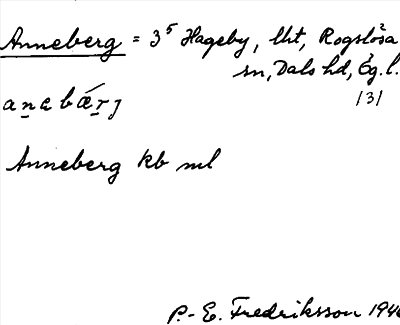 Anneberg = 3⁵ Hageby, lht, Rogslösa
sn, Dals hd, Ög. l.
131
anabærj
Anneberg kb ml
P.-E. Fredriksson 194